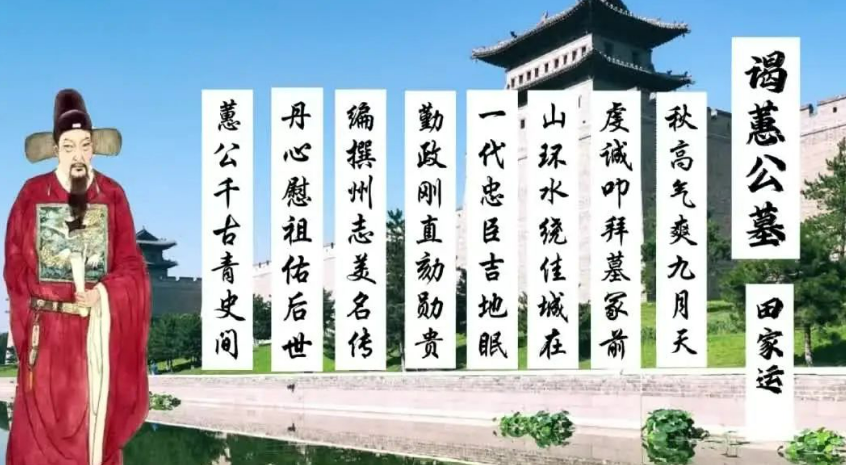 谒蕙公墓
田家运
秋高气爽九月天
虔诚叩拜墓冢前
山环水绕佳城在
一代忠臣吉地眠
勤政刚直劾勋贵
编撰州志美名传
丹心慰祖佑后世
蕙公千古青史间